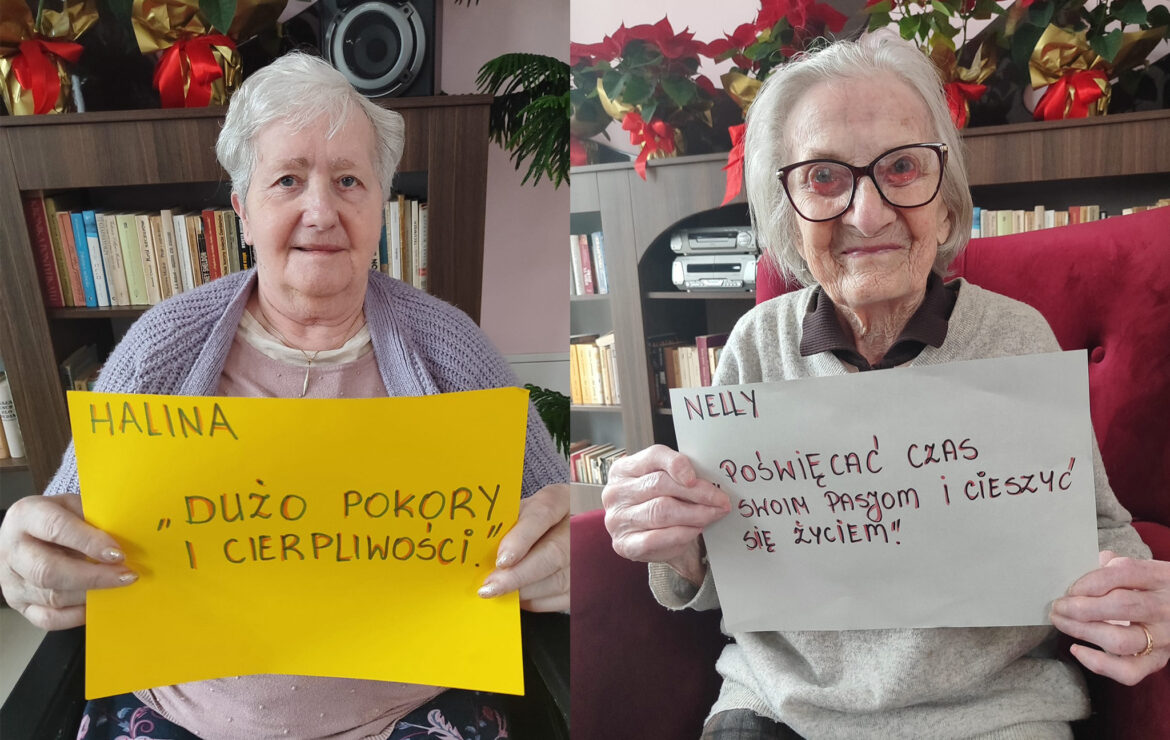 HALINA
„DUŻO POKORY
I CIERPLIWOŚCI."
NELLY
„POŚWIĘCAĆ CZAS
SWOIM PASJOM I CIESZYĆ
SIĘ ŻYCIEM!"